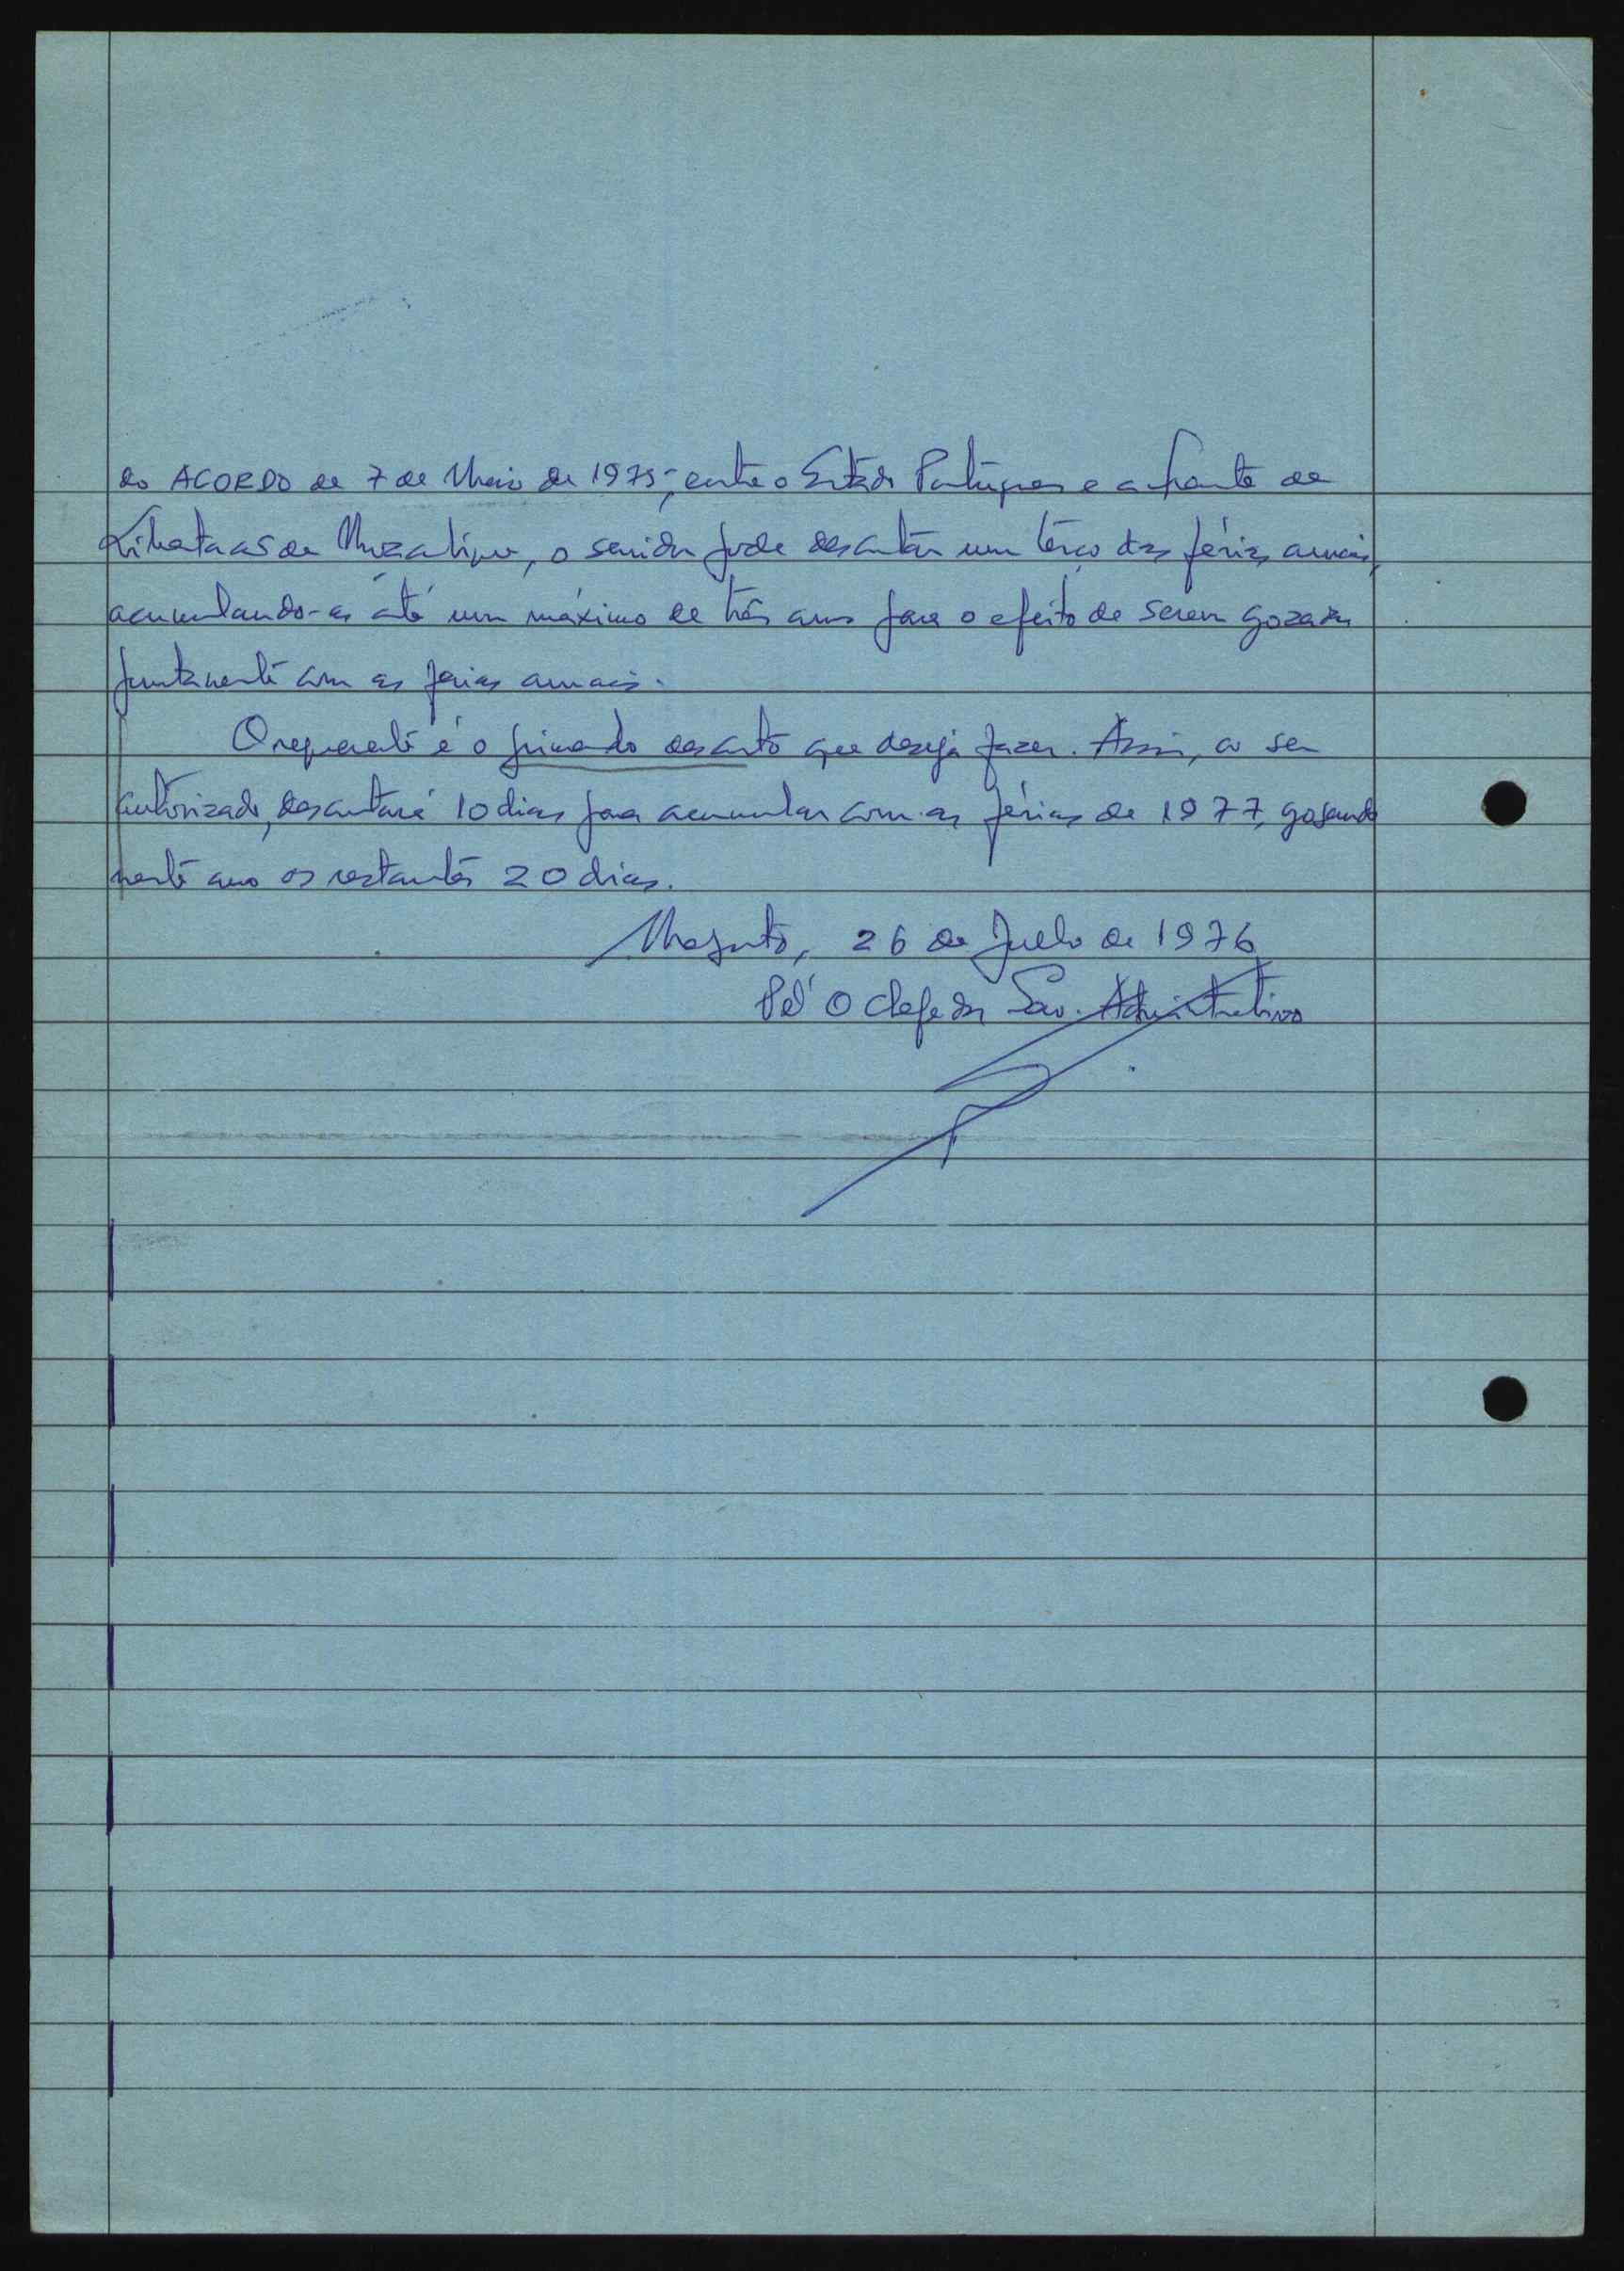 do ACORDO de 7 de Maio de 1975, entre o Estado Português e a Frente de
Libertação de Moçambique, o servidor pode descontar um terço das férias anuais,
acumulando-as até um máximo de três anos para o efeito de serem gozadas
juntamente com as férias anuais.
O requerente é o primeiro desconto que deseja fazer. Assim, a ser
autorizado, descontará 10 dias para acumular com as férias de 1977, gosando
neste ano os restantes 20 dias.
Maputo, 26 de Julho de 1976
Pel' O chefe dos Serv. Administrativos